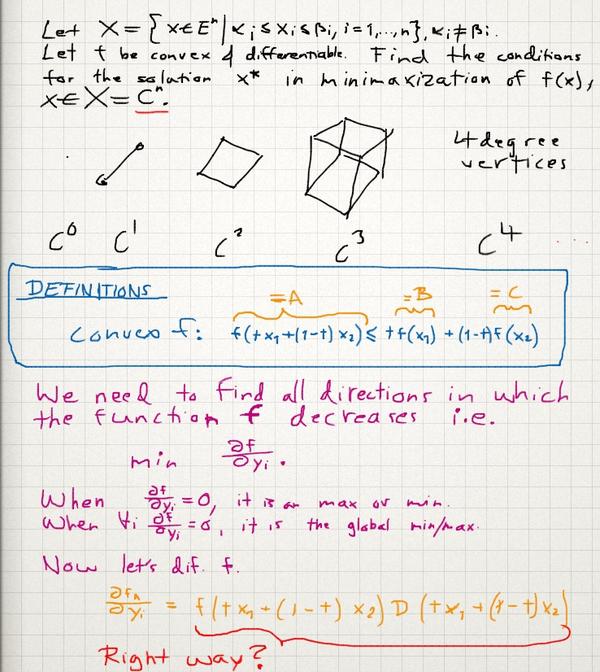 Let X = { x∈Eⁿ | αᵢ ≤ xᵢ ≤ βᵢ, i=1,...,n}, αᵢ ≠ βᵢ.
Let f be convex & differentiable. Find the conditions
for the solution x* in minimaxization of f(x),
x∈X = Cⁿ.
4 degree
vertices
C⁰ C¹ C² C³ C⁴ ...
DEFINITIONS
=A =B =C
convex f: f(tx₁+(1-t)x₂) ≤ tf(x₁)+(1-t)f(x₂)
We need to find all directions in which
the function f decreases i.e.
min ∂f/∂yᵢ.
When ∂f/∂yᵢ=0, it is an max or min.
When ∀i ∂f/∂yᵢ=0, it is the global min/max.
Now let's dif. f.
∂fₐ/∂yᵢ = f(tx₁+(1-t)x₂) D (tx₁+(1-t)x₂)
Right way?